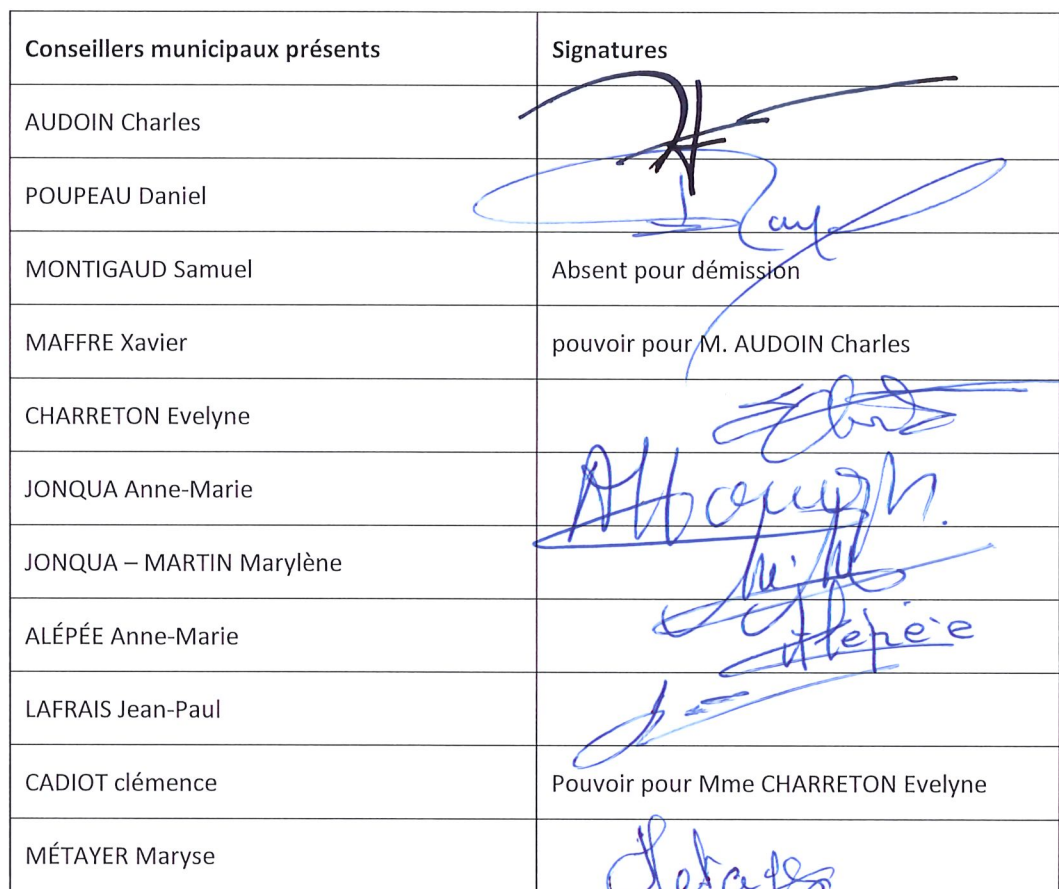 Conseillers municipaux présents Signatures
AUDOIN Charles
POUPEAU Daniel
MONTIGAUD Samuel Absent pour démission
MAFFRE Xavier pouvoir pour M. AUDOIN Charles
CHARRETON Evelyne
JONQUA Anne-Marie
JONQUA – MARTIN Marylène
ALÉPÉE Anne-Marie Alépée
LAFRAIS Jean-Paul
CADIOT clémence Pouvoir pour Mme CHARRETON Evelyne
MÉTAYER Maryse